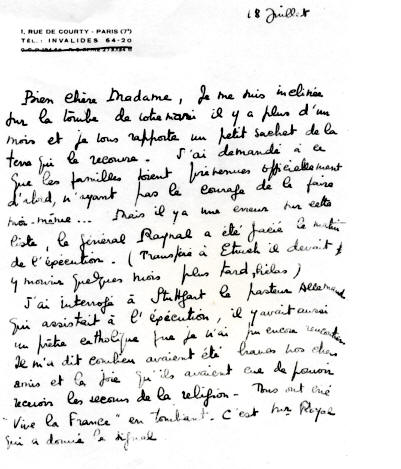 18 Juillet
1, RUE DE COURTY - PARIS (7e)
TÉL.: INVALIDES 64-20
Bien chère Madame, Je me suis inclinée
sur la tombe de votre mari il y a plus d'un
mois et je vous rapporte un petit sachet de la
terre qui le recouvre. J'ai demandé à ce
que les familles soient prévenues officiellement
d'abord, n'ayant pas le courage de le faire
moi-même... Mais il y a une erreur sur cette
liste, le général Raynal a été gracié le matin
de l'éxécution. (Transféré à il devait
y mourir quelques mois plus tard, hélas)
J'ai interrogé à Stuttgart le pasteur Allemand
qui assistait à l'éxécution, il y avait aussi
un prêtre catholique que je n'ai pu encore rencontrer
Il m'a dit combien avaient été braves nos chers
amis et la joie qu'ils avaient eue de pouvoir
recevoir les secours de la religion - Tous ont crié
"Vive la France" en tombant. C'est Mr Royal
qui a donné le signal.